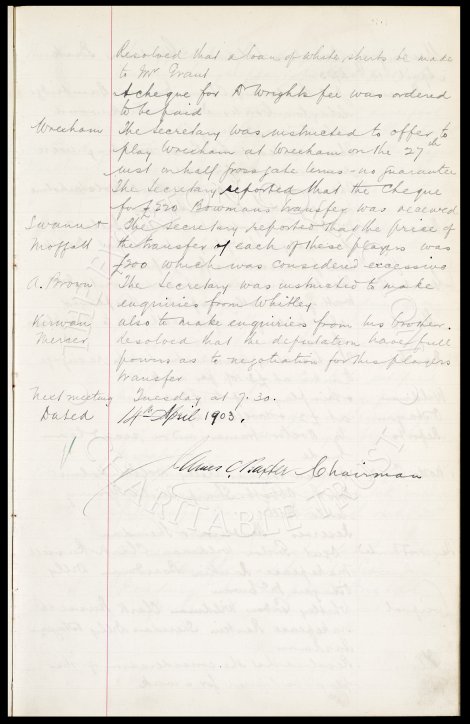 Resolved that a loan of white shirts be made
to Mr Grant
A cheque for Dr Wrights fee was ordered
to be paid
Wrexham The Secretary was instructed to offer to
play Wrexham at Wrexham on the 27th
inst on half gross gate terms - no guarantee
The Secretary reported that the Cheque
for £320 Bowmans transfer was received
The Secretary reported that the price of
Moffatt the transfer of each of these players was
£300 which was considered excessive
A. Brown The Secretary was instructed to make
enquiries from Whitley
Kirwan also to make enquiries from his brother.
Mercer resolved that the deputation have full
powers as to negotiation for this players
transfer
Next meeting Tuesday at 7.30.
Dated 14th April 1903.
James C. Baxter Chairman
CHARITABLE